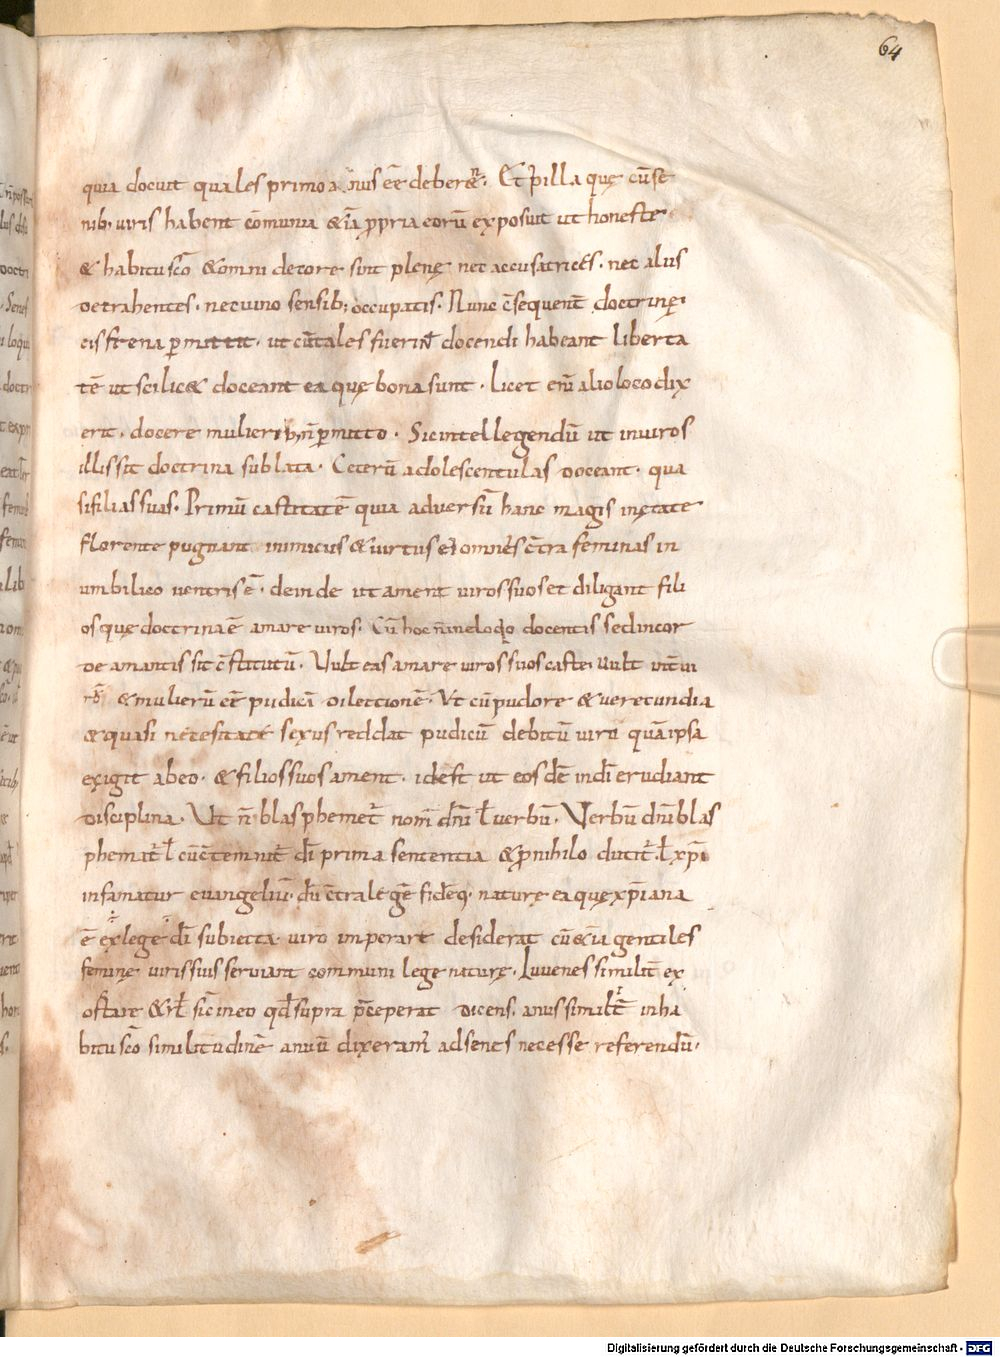 64
quia docuit quales primo a nus eē deberēt. Et p̄ illa quę cū se
nib; viris habent cōmunia & iā ꝓpria earū exposuit ut honeste
& habitu sc̄o & omni decore sint plenę nec accusatrices. nec alus
detrahentes. nec vino sensib; occupatis. Nunc c̄sequent̄ doctrinę
eis frena ꝑmittit. ut cū tales fuerint̄ docendi habeant liberta
tē ut scilic& doceant ea quę bona sunt. licet enī alio loco dix
erit. docere mulieri n̄ ꝑmitto. Sic intellegendū ut in viros
illis sit doctrina sublata. Ceterū adolescentulas doceant. qua
si filias suas. Primū castitatē quia adversū hanc magis in ętate
florente pugnant inimicus & virtus ei omnis c̄tra feminas in
umbilico ventris ē. deinde ut ament viros suos et diligant fili
os quę doctrina ē amare viros. Cū hoc n̄ in eloq̊o docentis sed in cor
de amantis sit c̄stitutū. Vult eas amare viros suos caste. vult int̄ vi
rū & mulierū eē pudicā dilectionē. Ut cū pudore & verecundia
& quasi necesitate sexus reddat pudicū debitū viro quā ipsa
exigit ab eo. & filios suos ament. idest ut eos dē in dī erudiant
disciplina. Ut n̄ blasphemet̄ nom̄ dn̄i ł verbū. Verbū dn̄i blas
phemat̄ ł cū c̄temnit̄ dī prima sententia & ꝓ nihilo ducit̄. ł xp̄i
infamatur evangeliū. dū c̄tra legē fidēq. naturę ea quę xp̄iana
ē ex lege dī subiecta viro imperare desiderat cū & iā gentiles
feminę viris suis serviant communi lege naturę. Iuvenes similit̄ ex
ortare & rł sic in eo qd̄ supra p̄ceperat dicens. anus similit̄ in ha
bitu sc̄o similitudinē anuū dixeram̄ ad senes necesse referendū.
Digitalisierung gefördert durch die Deutsche Forschungsgemeinschaft - DFG